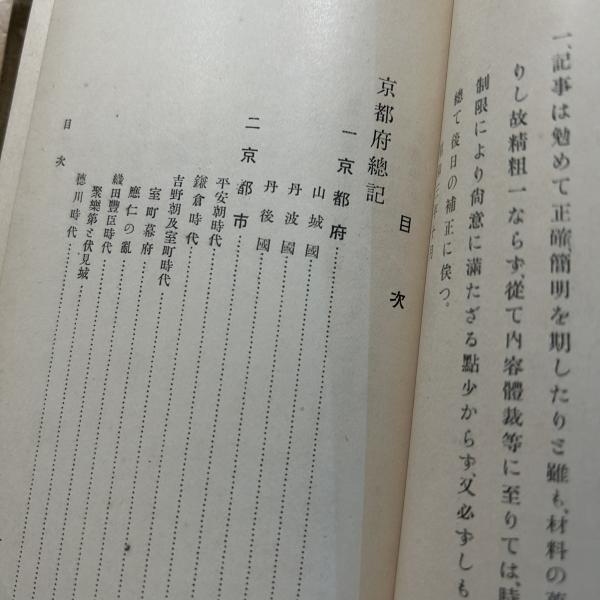 一、記事は勉めて正確、簡明を期したりと雖も、材料の
りし故精粗一ならず、從て内容體裁等に至りては、時
制限により尙意に滿たざる點少からず、又必ずしも
總て後日の補正に俟つ。
目次
京都府總記
一 京都府
山城國
丹波國
丹後國
二 京都市
平安朝時代
鎌倉時代
吉野朝及室町時代
室町幕府
應仁の亂
織田豐臣時代
聚樂第と伏見城
德川時代
目次